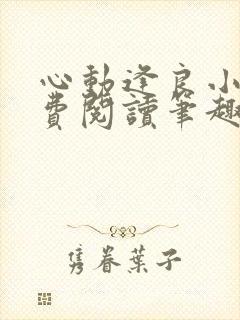 心動逢良小
費閱讀筆趣
雋眷葉子